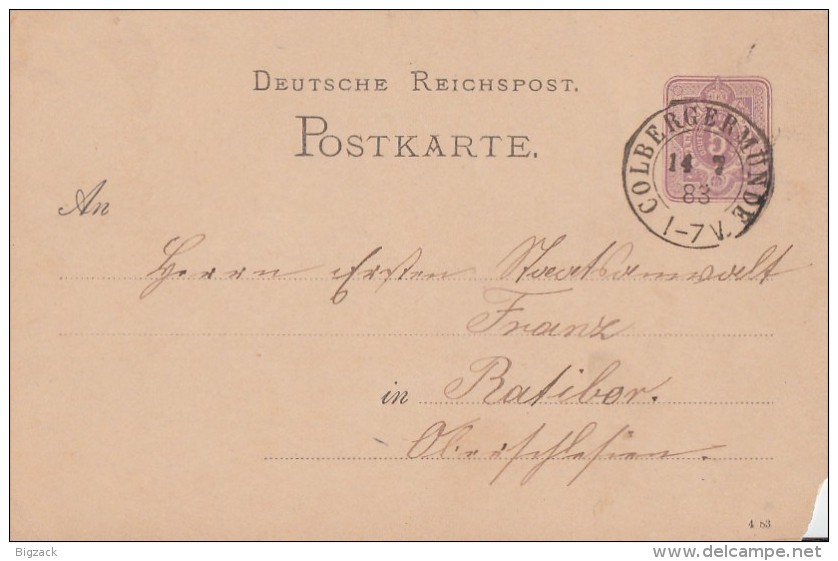 DEUTSCHE REICHSPOST.
POSTKARTE.
COLBERGERMÜNDE
14 7
83
1-7 V.
An
Herrn Ersten Staatsanwalt
Franz
in Ratibor.
Oberschlesien.
4 83
Bigzack
www.delcampe.net